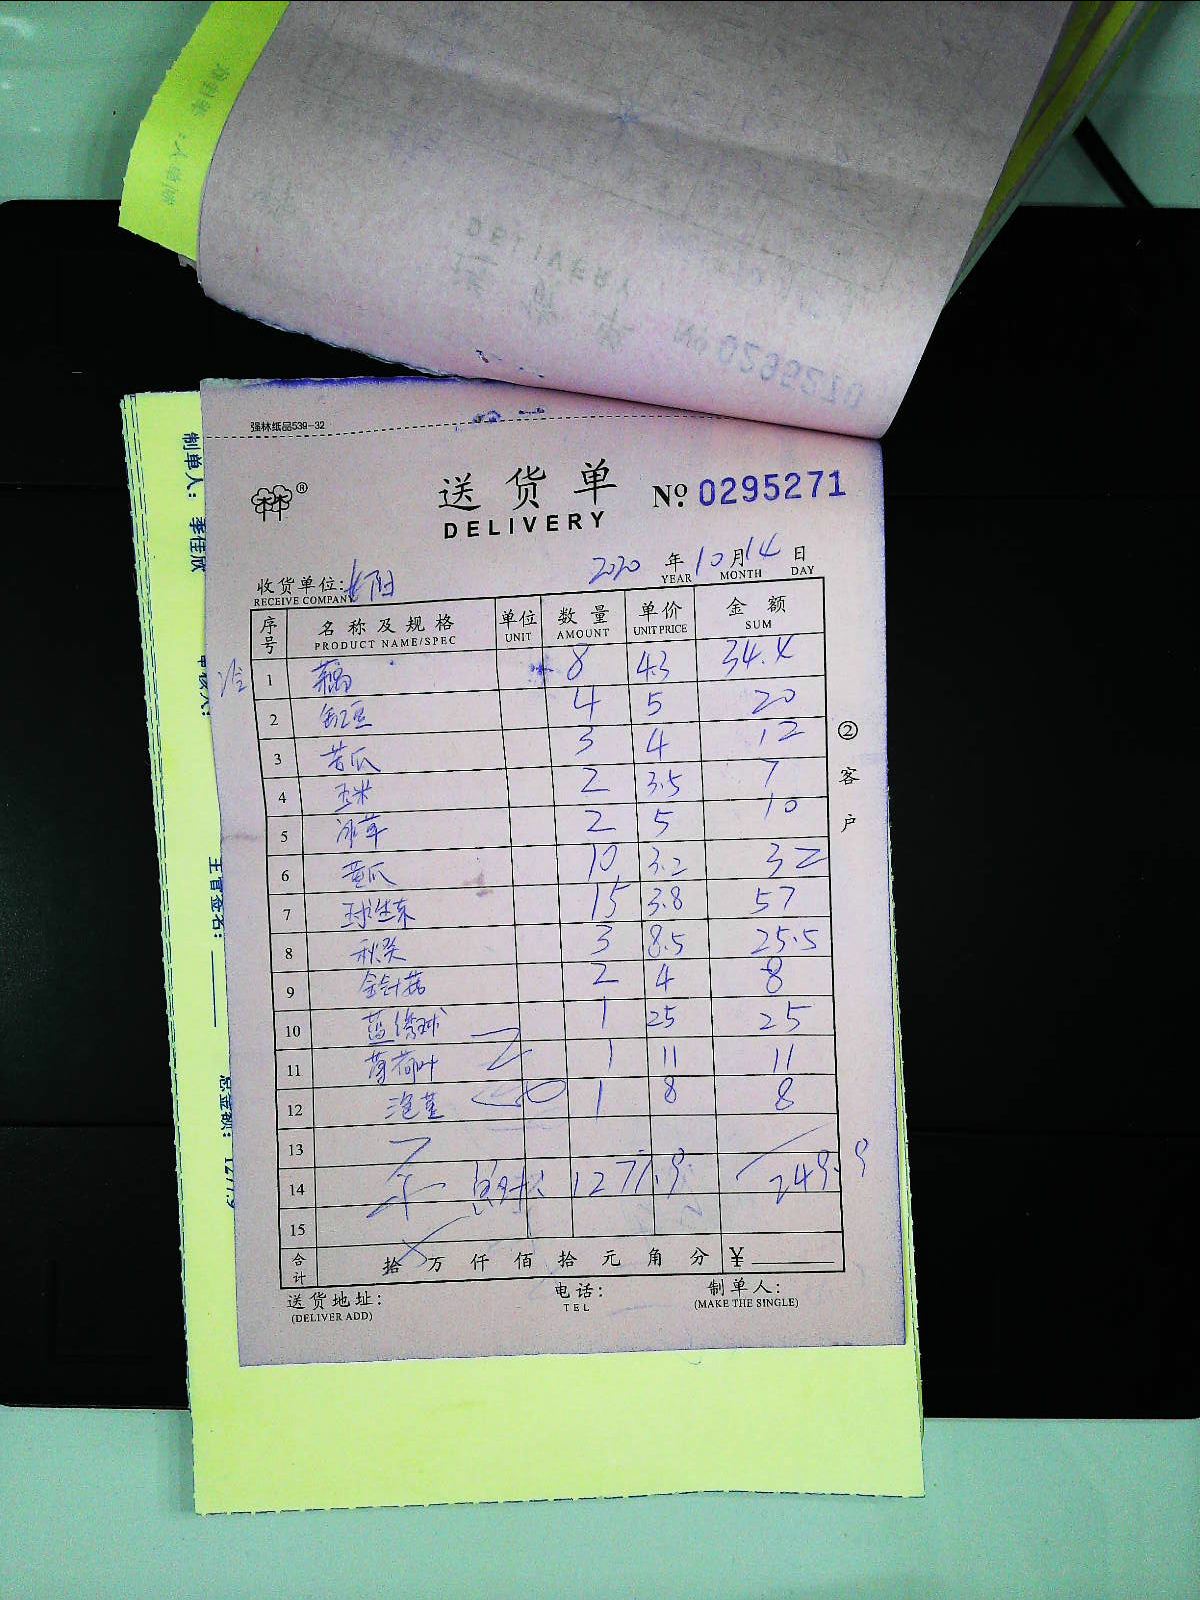 强林纸品539-32
送货单 №. 0295271
DELIVERY
2020 年 10 月 14 日
YEAR MONTH DAY
收货单位:
RECEIVE COMPANY
序号 名称及规格 单位 数量 单价 金额
PRODUCT NAME/SPEC UNIT AMOUNT UNIT PRICE SUM
1 藕 8 4.3 34.4
2 豇豆 4 5 20
3 苦瓜 3 4 12
4 玉米 2 3.5 7
5 冰草 2 5 10
6 黄瓜 10 3.2 32
7 球生菜 15 3.8 57
8 秋葵 3 8.5 25.5
9 金针菇 2 4 8
10 蓝绣球 1 25 25
11 薄荷叶 1 11 11
12 1 8 8
13
14 1277.9 249.9
15
合计 拾 万 仟 佰 拾 元 角 分 ¥
送货地址: 电话: 制单人:
(DELIVER ADD) TEL (MAKE THE SINGLE)
② 客户
制单人: 李佳欣
审核人:
主管签名:
总金额: 1277.9